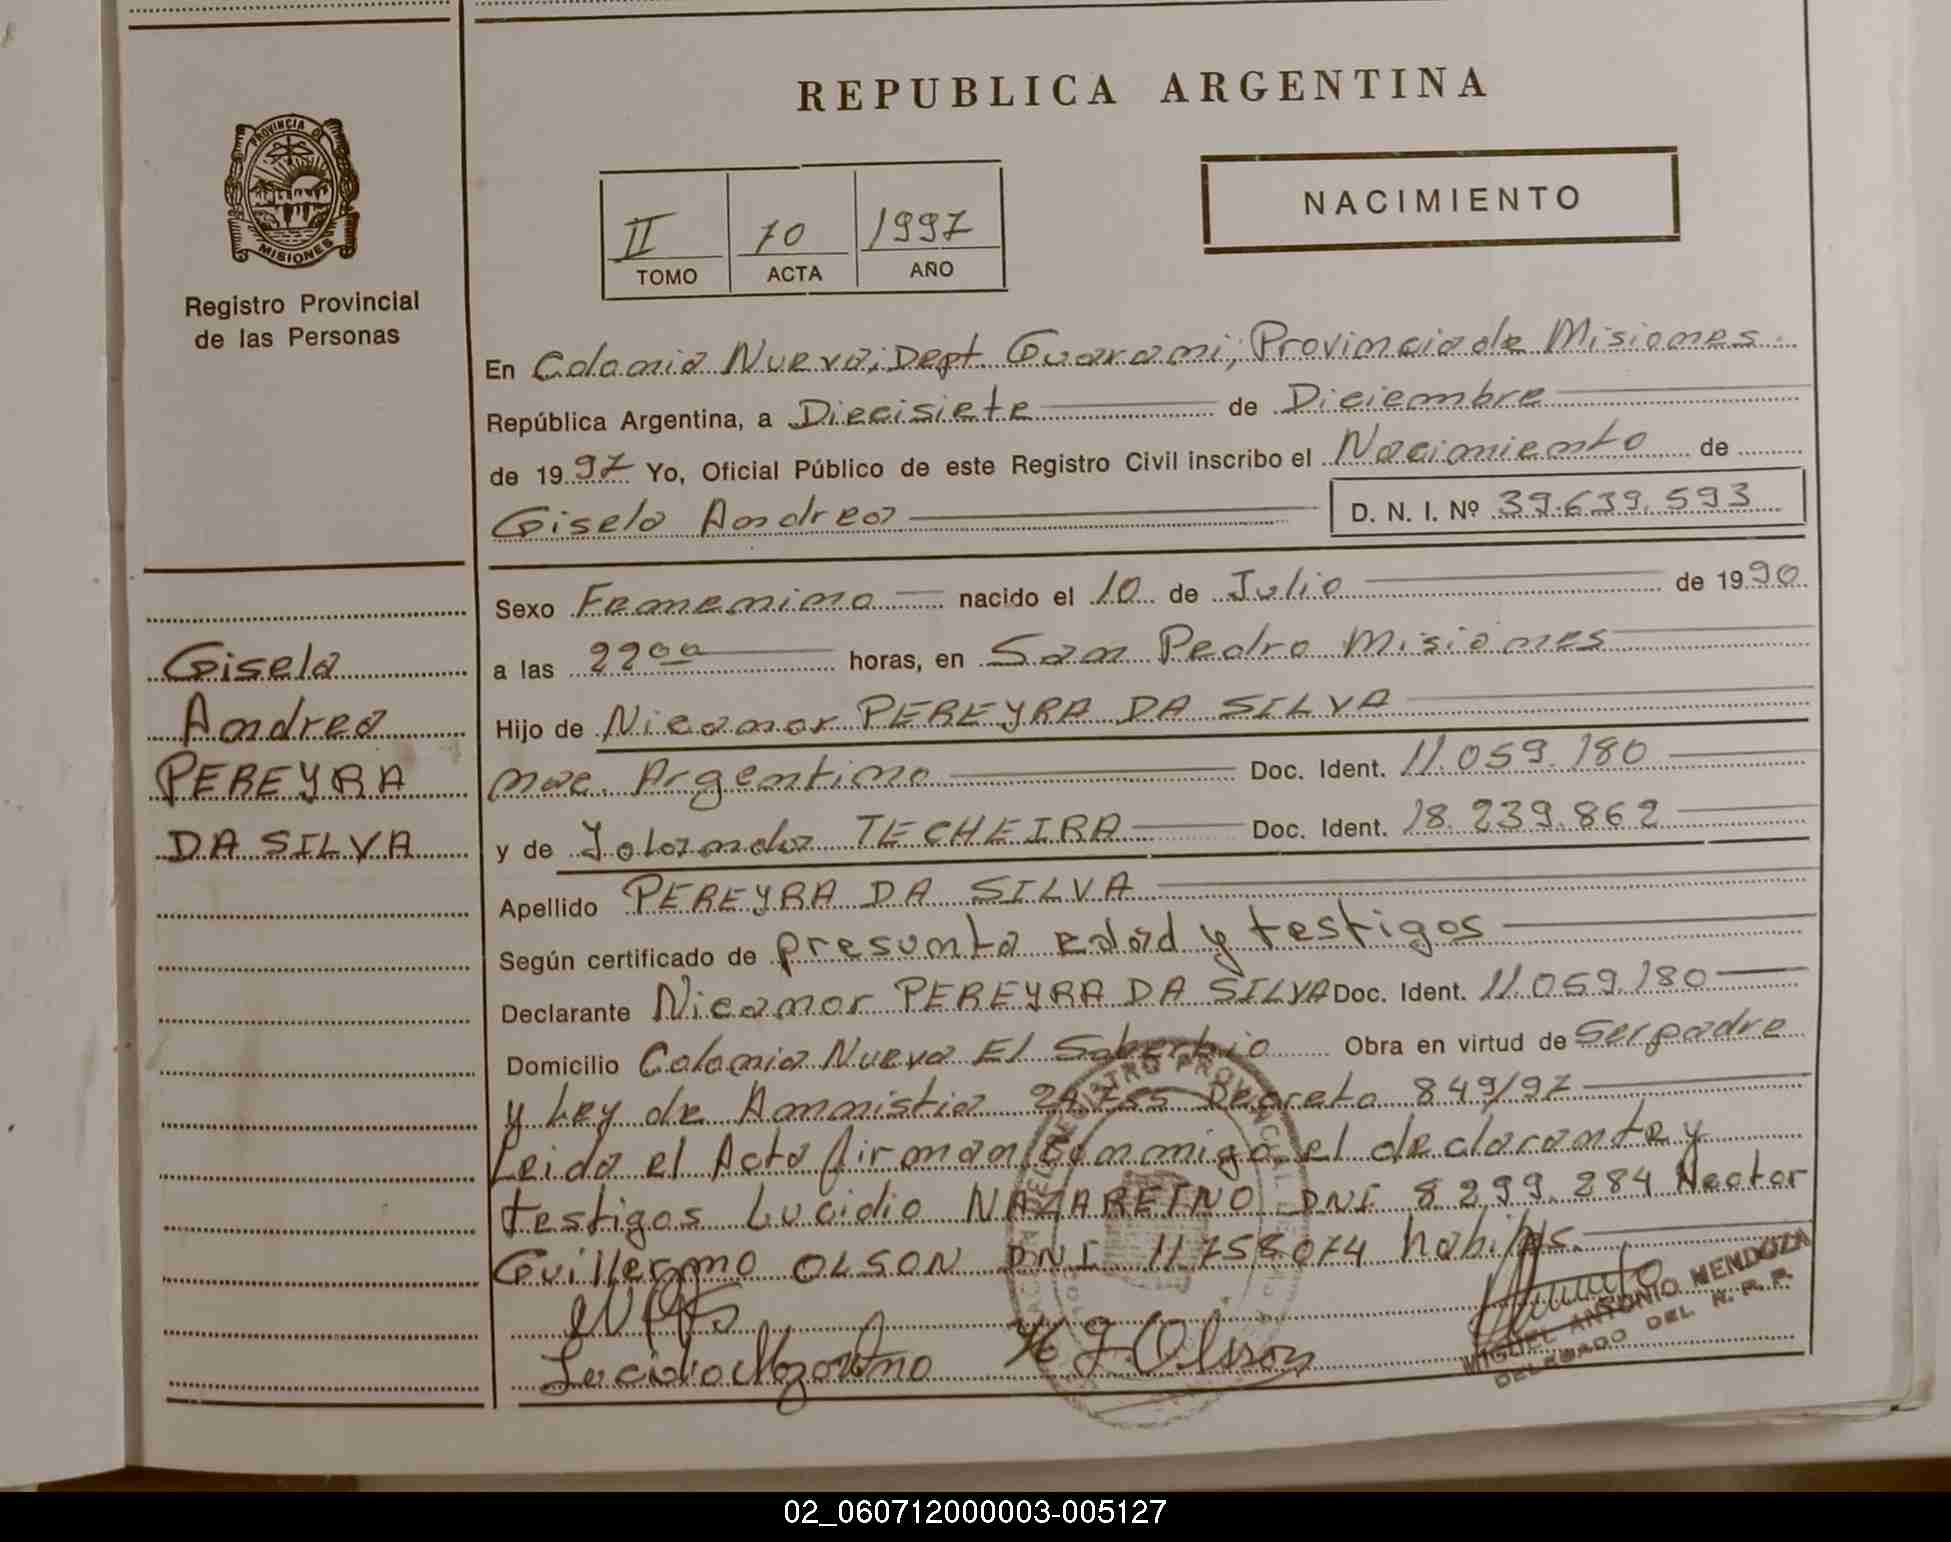 REPUBLICA ARGENTINA
PROVINCIA DE
MISIONES
Registro Provincial
de las Personas
II 10 1997
TOMO ACTA AÑO
NACIMIENTO
En Colonia Nueva, Dept. Guarani, Provincia de Misiones.
República Argentina, a Diecisiete de Diciembre
de 1997 Yo, Oficial Público de este Registro Civil inscribo el Nacimiento de
Gisela Andrea D. N. I. Nº 39.639.593
Gisela
Andrea
PEREYRA
DA SILVA
Sexo Femenino nacido el 10 de Julio de 1990
a las 22ºº horas, en San Pedro Misiones
Hijo de Nicanor PEREYRA DA SILVA
nac. Argentino Doc. Ident. 11.059.180
y de Yolanda TECHEIRA Doc. Ident. 18.239.862
Apellido PEREYRA DA SILVA
Según certificado de presunta edad y testigos
Declarante Nicanor PEREYRA DA SILVA Doc. Ident. 11.059.180
Domicilio Colonia Nueva El Soberbio Obra en virtud de Ser padre
y Ley de Ammistia 24755 Decreto 849/97
Leida el Acta firman Conmigo el declarante y
testigos Lucidio NAZAREINO DNI 8.299.284 Hector
Guillermo OLSON DNI 11758074 habiles.
H G. Olsson
MIGUEL ANTONIO MENDOZA
DELEGADO DEL R. P. P.
02_060712000003-005127